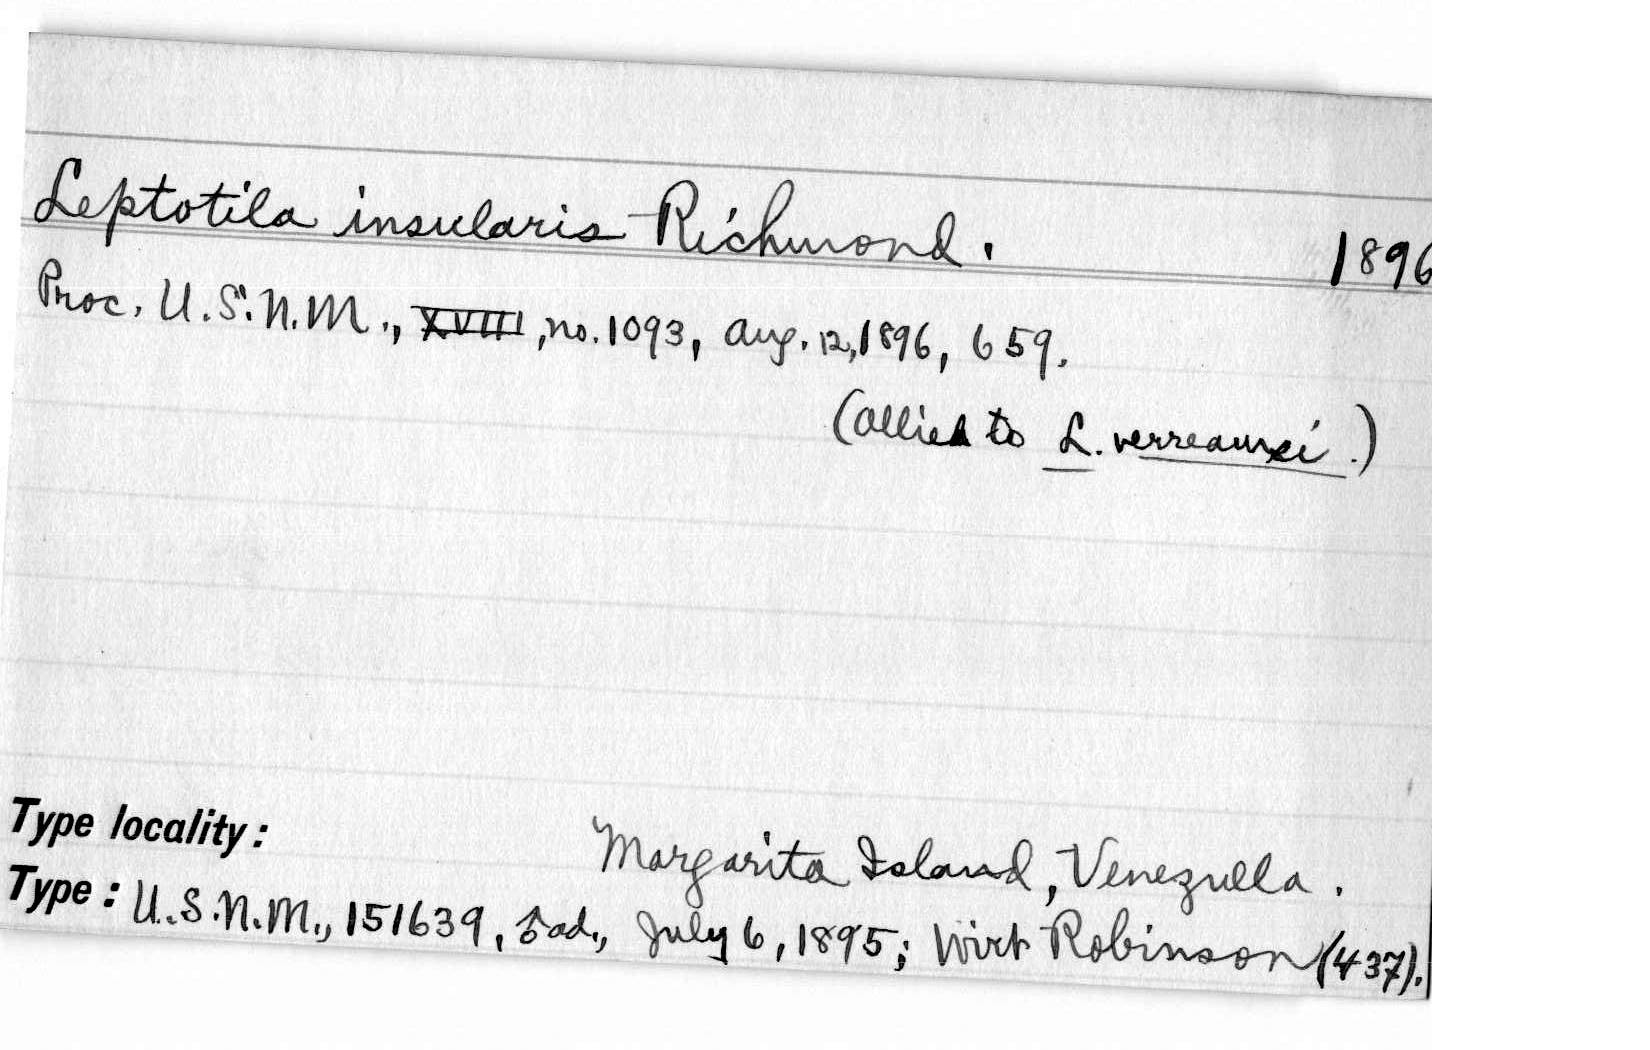 Leptotila insularis Richmond. 1896
Proc. U.S.N.M., XVIII, no. 1093, Aug. 12, 1896, 659.
(Allied to L. verreauxi.)
Type locality: Margarita Island, Venezuela.
Type: U.S.N.M., 151639, ad., July 6, 1895; Wirt Robinson (437).